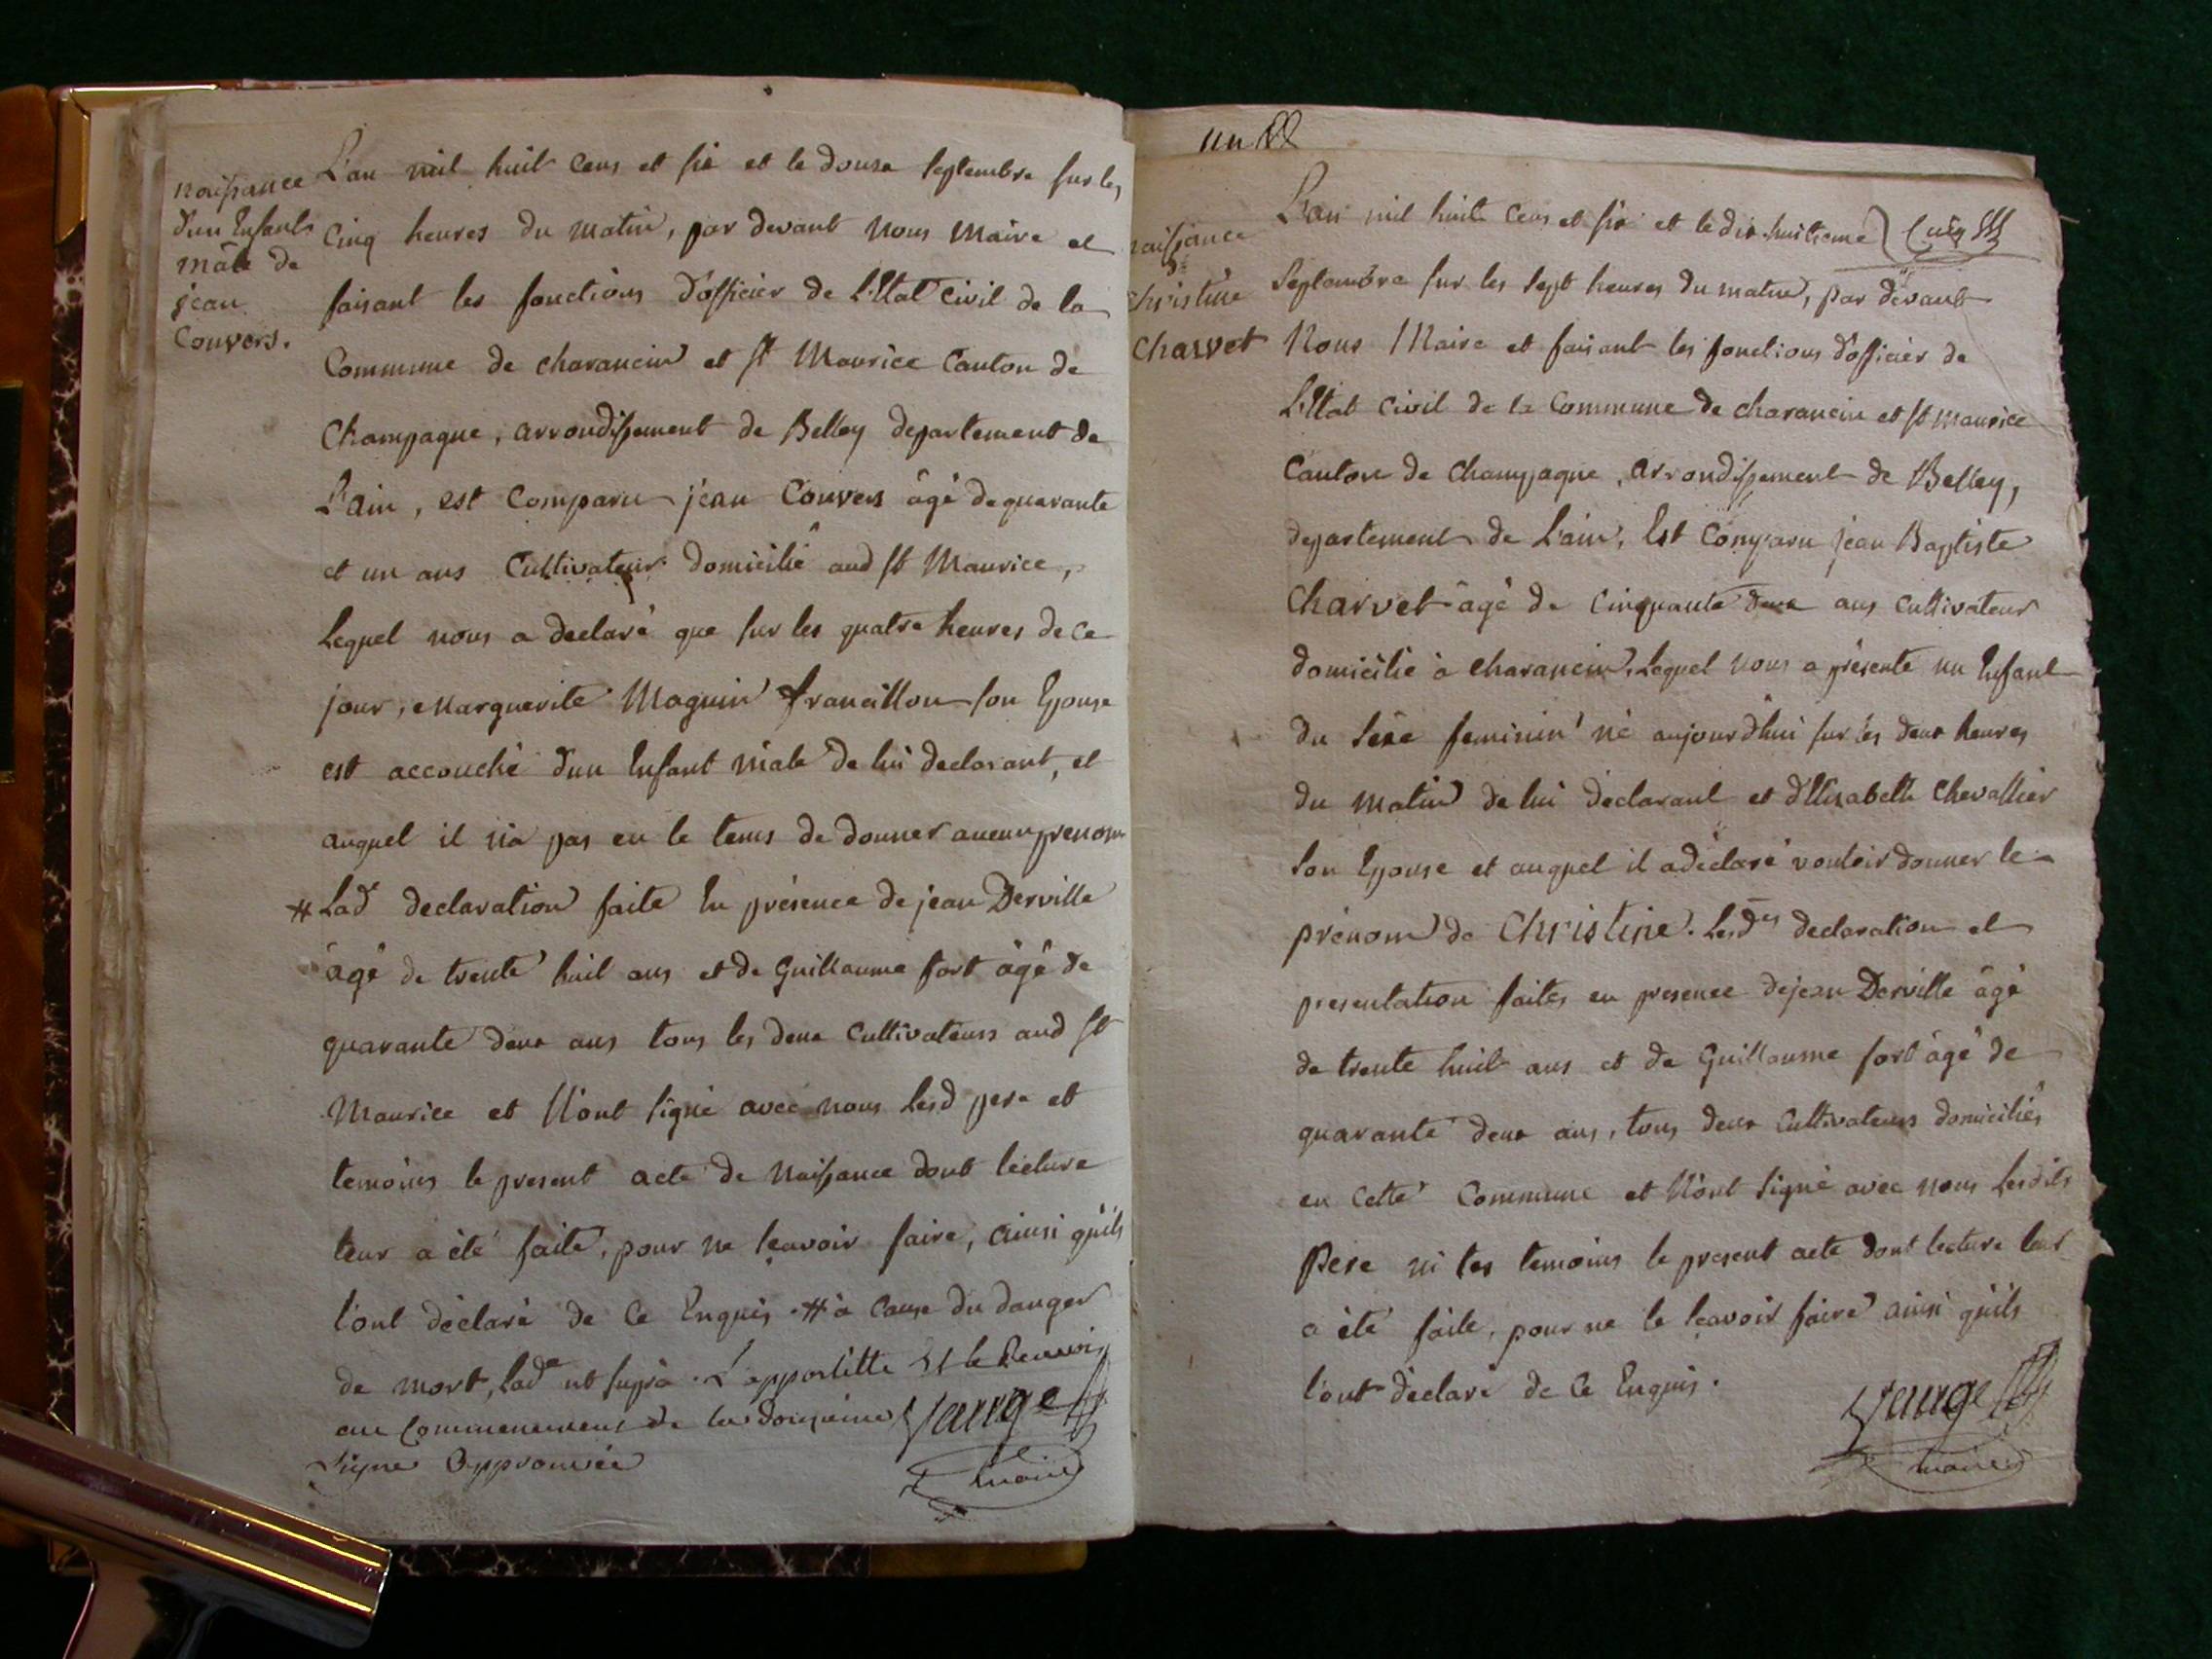 naissance
d'un Enfants
mâle de
jean
Convers.
L'an mil huit cens et six et le douse Septembre sur les
Cinq heures du matin, par devant Nous Maire et
faisant les fonctions d'officier de L'Etat Civil de la
Commune de charancin et St Maurice Canton de
Champagne, arrondissement de Belley departement de
L'ain, est Comparu jean Convers âgé de quarante
et un ans Cultivateur domicilié aud St Maurice,
Lequel nous a declaré que sur les quatre heures de ce
jour, Marguerite Magnin francillon son Epouse
est accouché d'un Enfant mâle de lui declarant, et
auquel il n'a pas eu le tems de donner aucun prenom
# Lad declaration faite En présence de jean Derville
âgé de trente huit ans et de Guillaume fort âgé de
quarante deux ans tous les deux Cultivateurs aud St
Maurice et N'ont signé avec nous Lesd pere et
temoins le present acte de Naissance dont lecture
leur a été faite, pour ne sçavoir faire, ainsi qu'ils
l'ont déclaré de ce Enquis. # à Cause du danger
de mort, Lade ut supra. L'appostille Et le Renvoi
au Commencement de la douzieme
Ligne Approuvée
Vauge
maire
un
L'an mil huit cens et six et le dix-huitieme
naissance
de
christine
Charvet
Septembre sur les sept heures du matin, par devant
Nous Maire et faisant les fonctions d'officier de
L'Etat Civil de la Commune de charancin et St Maurice
Canton de Champagne, arrondissement de Belley,
departement de L'ain, Est Comparu jean Baptiste
Charvet âgé de Cinquante deux ans Cultivateur
domicilié à charancin, Lequel nous a présenté un Enfant
du Sexe feminin né aujourd'hui sur les deux heures
du matin de lui déclarant et d'Elisabeth Chevallier
Son Epouse et auquel il a déclaré vouloir donner le
prénom de Christine. Lesdes declaration et
presentation faites en presence de jean Derville âgé
de trente huit ans et de Guillaume fort âgé de
quarante deux ans, tous deux Cultivateurs domiciliés
en Cette Commune et N'ont signé avec nous Lesdits
Pere ni les temoins le present acte dont lecture leur
a été faite, pour ne le sçavoir faire ainsi qu'ils
l'ont déclaré de ce Enquis.
Vauge
maire